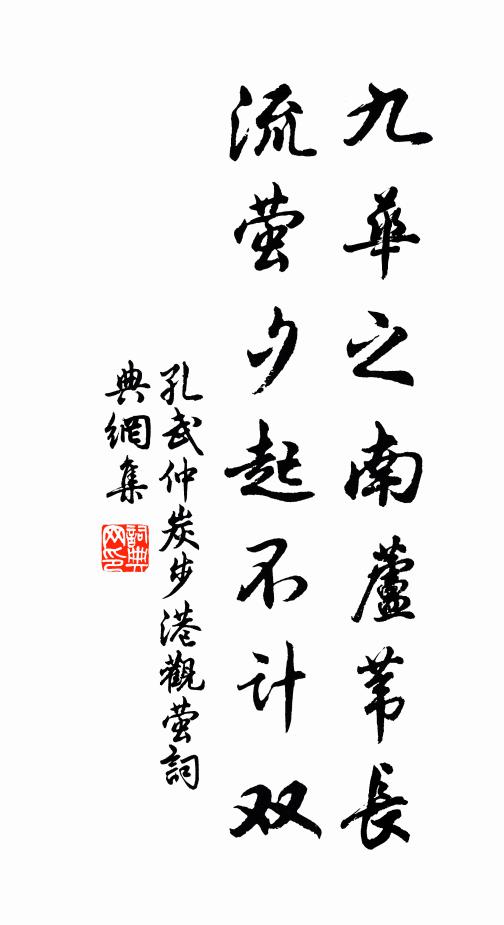 九華之南蘆苇長
流萤夕起不计双
孔武仲炭步港觀萤詞
典網集
詞典网印